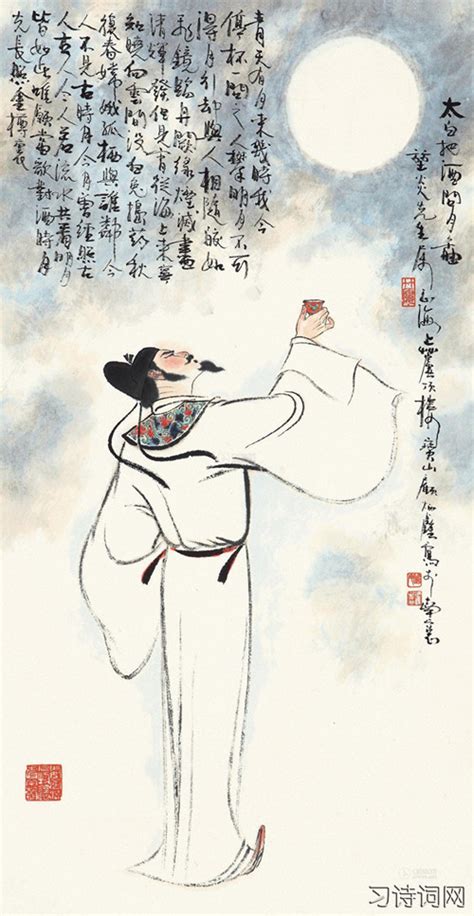 太白把酒問月圖
炎先生屬 海上 樓 寶山顧炳鑫寫於
青天有月來幾時我今
停杯一問之人攀明月不可
得月行却與人相隨皎如
飛鏡臨丹闕綠煙滅盡
清輝發但見宵從海上來寧
知曉向雲間沒白兔搗藥秋
復春嫦娥孤栖與誰鄰今
人不見古時月今月曾經照古
人古人今人若流水共看明月
皆如此唯願當歌對酒時月
光長照金樽裏
习诗词网